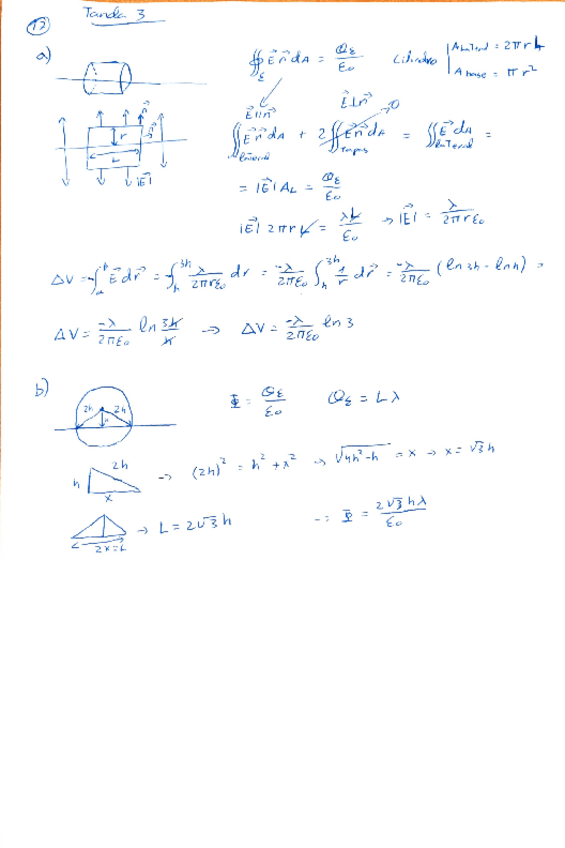 Tanda 3
12
a)
∯_Σ E⃗ n⃗ dA = Q_Σ/ε₀ Cilindro | A lateral = 2πrL
| A base = πr²
E⃗ ∥ n⃗ E⃗ ⊥ n⃗
∬_lateral E⃗ n⃗ dA + 2 ∬_tapas E⃗ n⃗ dA → 0 = ∬_lateral E⃗ dA =
n⃗
r
L
|E⃗|
= |E⃗| A_L = Q_Σ/ε₀
|E⃗| 2πrL = λL/ε₀ → |E⃗| = λ/2πrε₀
ΔV = -∫ E⃗ dr⃗ = -∫_h^3h λ/2πrε₀ dr = -λ/2πε₀ ∫_h^3h 1/r dr⃗ = -λ/2πε₀ (ln 3h - ln h) =
ΔV = -λ/2πε₀ ln 3h/h → ΔV = -λ/2πε₀ ln 3
b)
2h h 2h
Φ = Q_Σ/ε₀ Q_Σ = Lλ
h 2h x → (2h)² = h² + x² → √4h²-h = x → x = √3 h
2x=L → L = 2√3 h → Φ = 2√3 hλ/ε₀